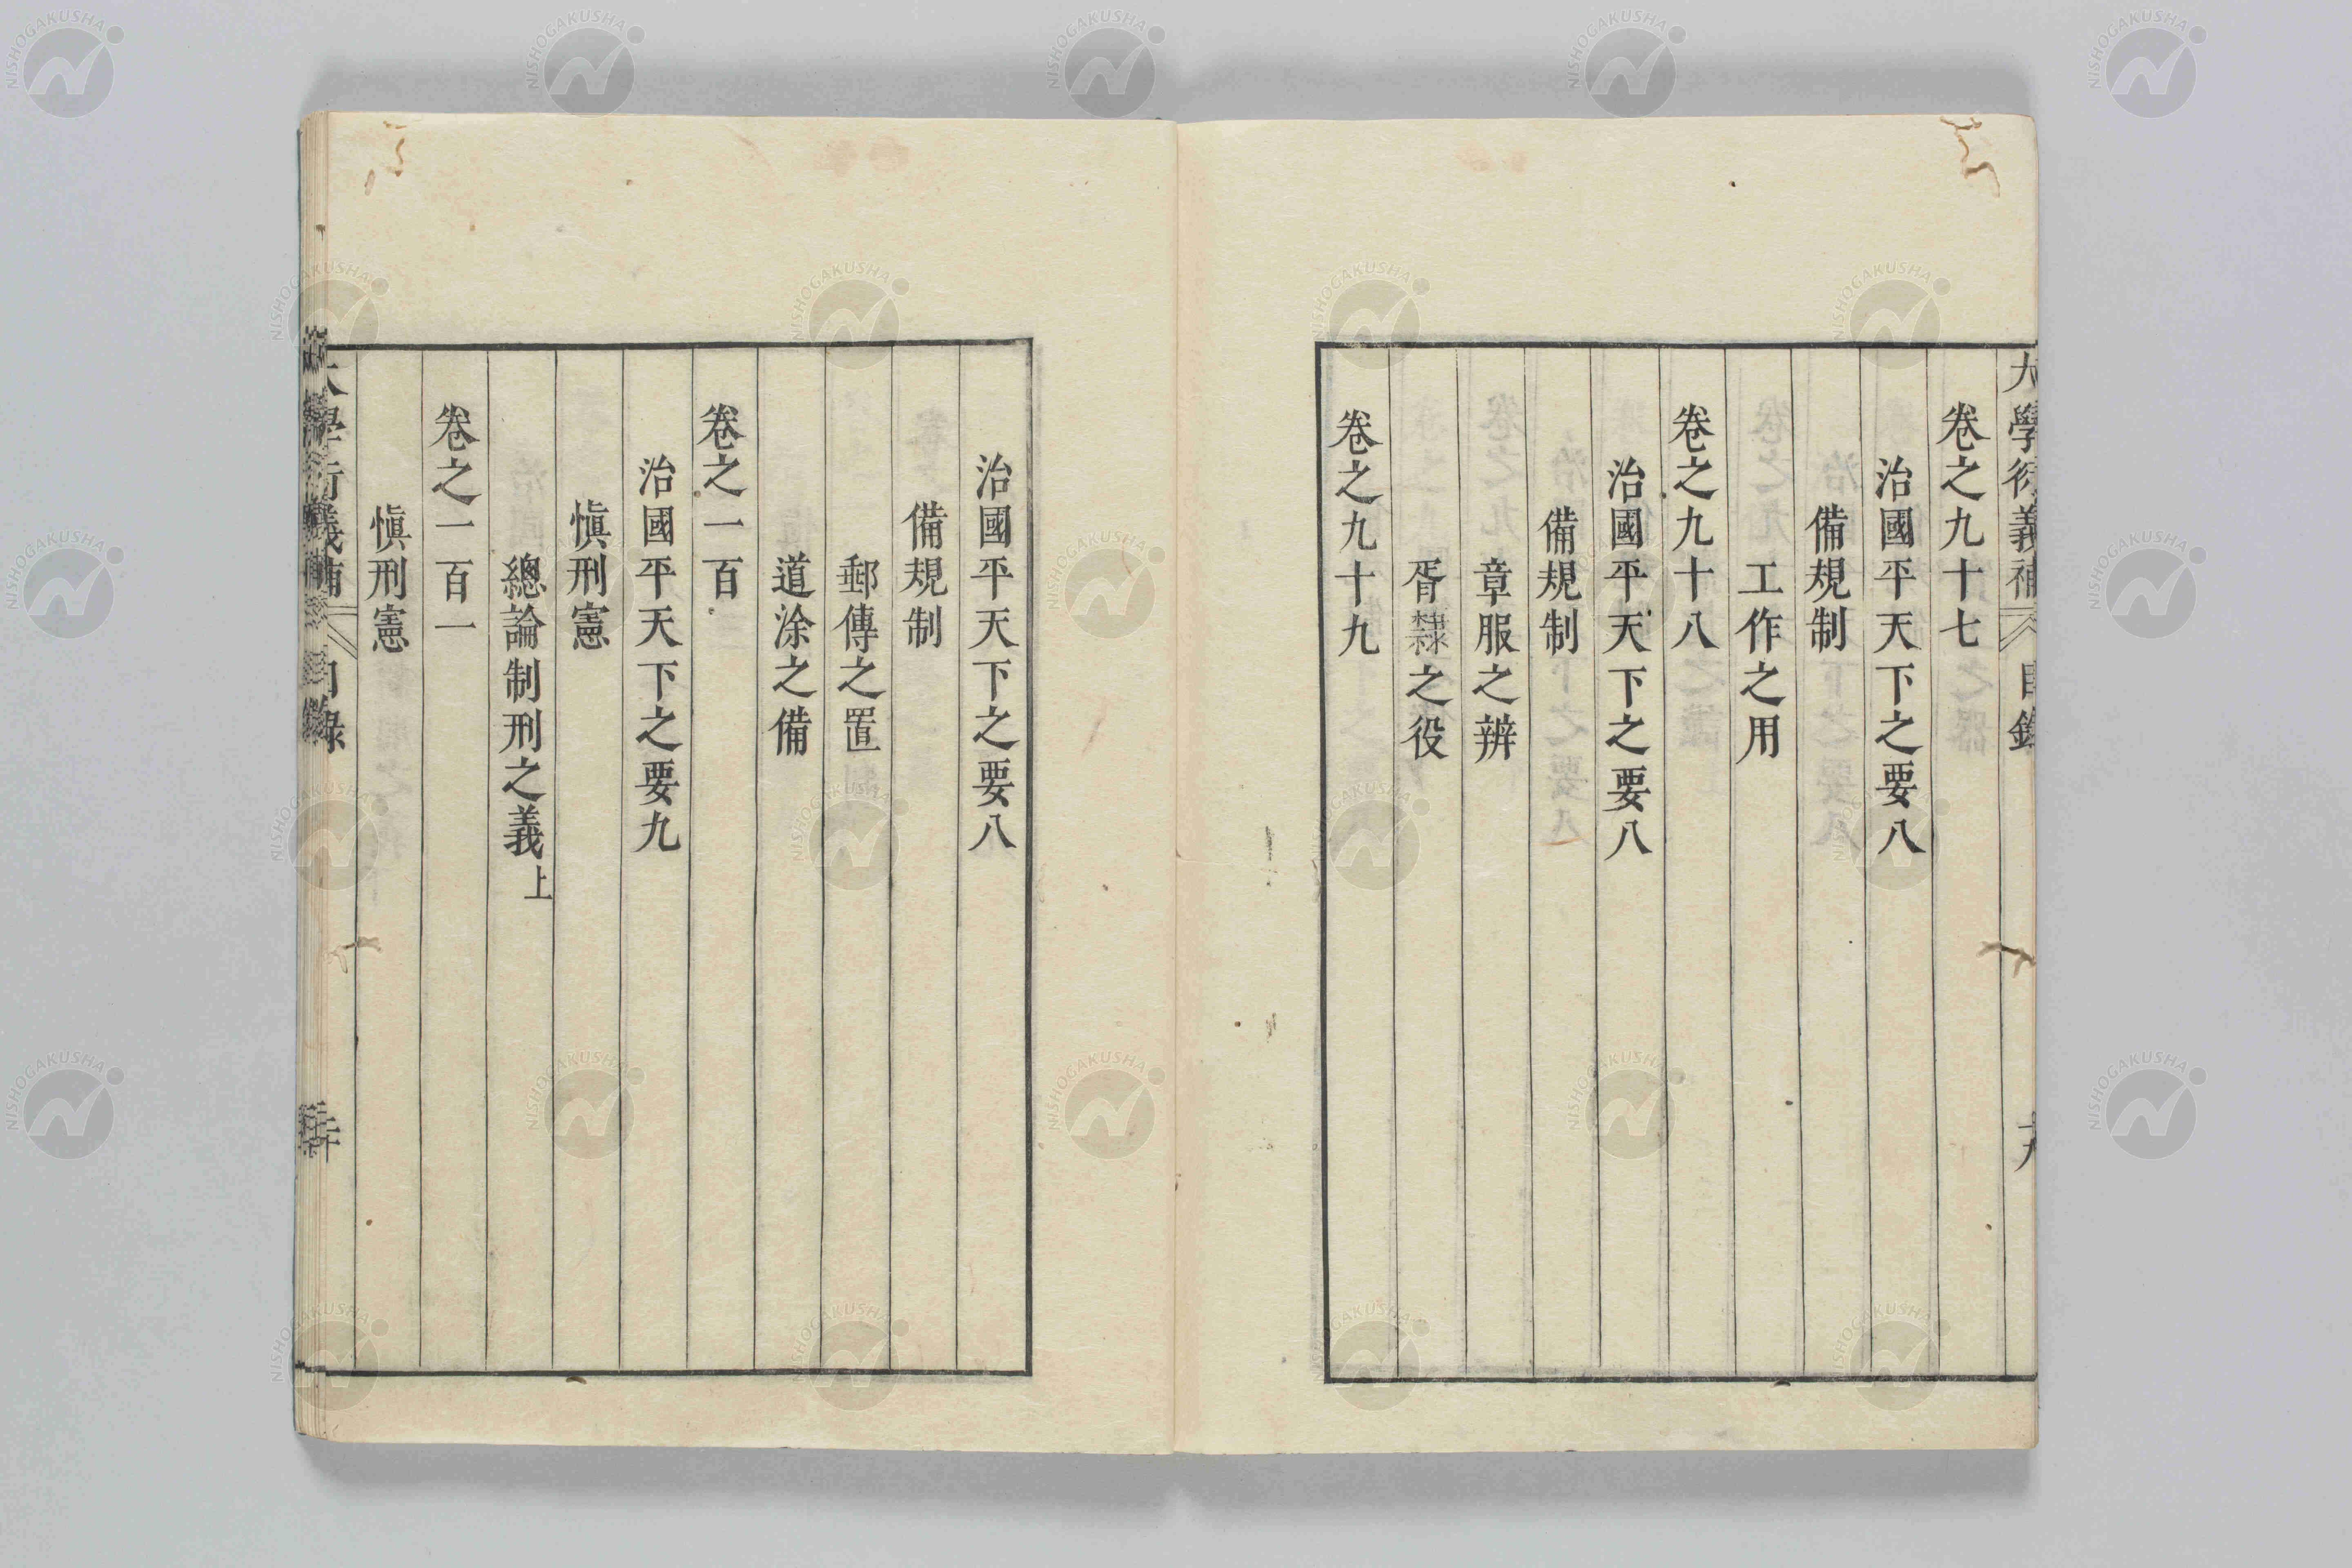 大學衍義補 目錄
卷之九十七
治國平天下之要八
備規制
工作之用
卷之九十八
治國平天下之要八
備規制
章服之辨
胥隸之役
卷之九十九
治國平天下之要八
備規制
郵傳之置
道涂之備
卷之一百
治國平天下之要九
慎刑憲
總論制刑之義上
卷之一百一
慎刑憲
大學衍義補 目錄
NISHOGAKUSHA